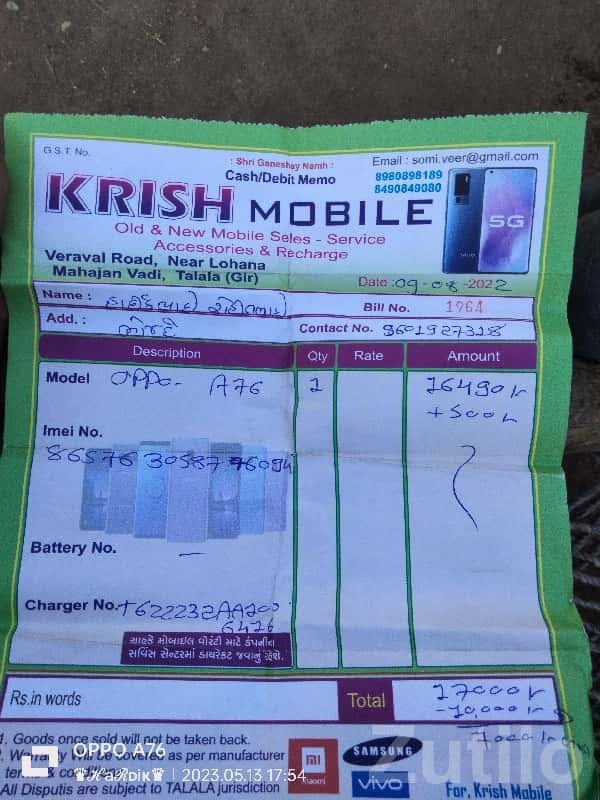 G.S.T. No.
: Shri Ganeshay Namh :
Email : somi.veer@gmail.com
Cash/Debit Memo
8980898189
8490849080
KRISH MOBILE
5G
vivo
Old & New Mobile Sales - Service
Accessories & Recharge
Veraval Road, Near Lohana
Mahajan Vadi, Talala (Gir)
Date : 09-08-2022
Name :
Bill No. 1964
Add. :
Contact No. 9601927328
Description Qty Rate Amount
Model OPPO- A76 1 16490
+500
Imei No.
Battery No. -
Charger No. T622232AA200
6426
ગ્રાહકે મોબાઈલ વોરંટી માટે કંપનીના
સર્વિસ સેન્ટરમાં ડાયરેક્ટ જવાનું રહેશે.
Rs.in words Total 17000
-10,000
7000
1. Goods once sold will not be taken back.
2. Warranty will be covered as per manufacturer
terms & conditions
All Disputis are subject to TALALA jurisdiction
mi
xiaomi
SAMSUNG
vivo
For, Krish Mobile
OPPO A76
2023.05.13 17:54
Zutilo